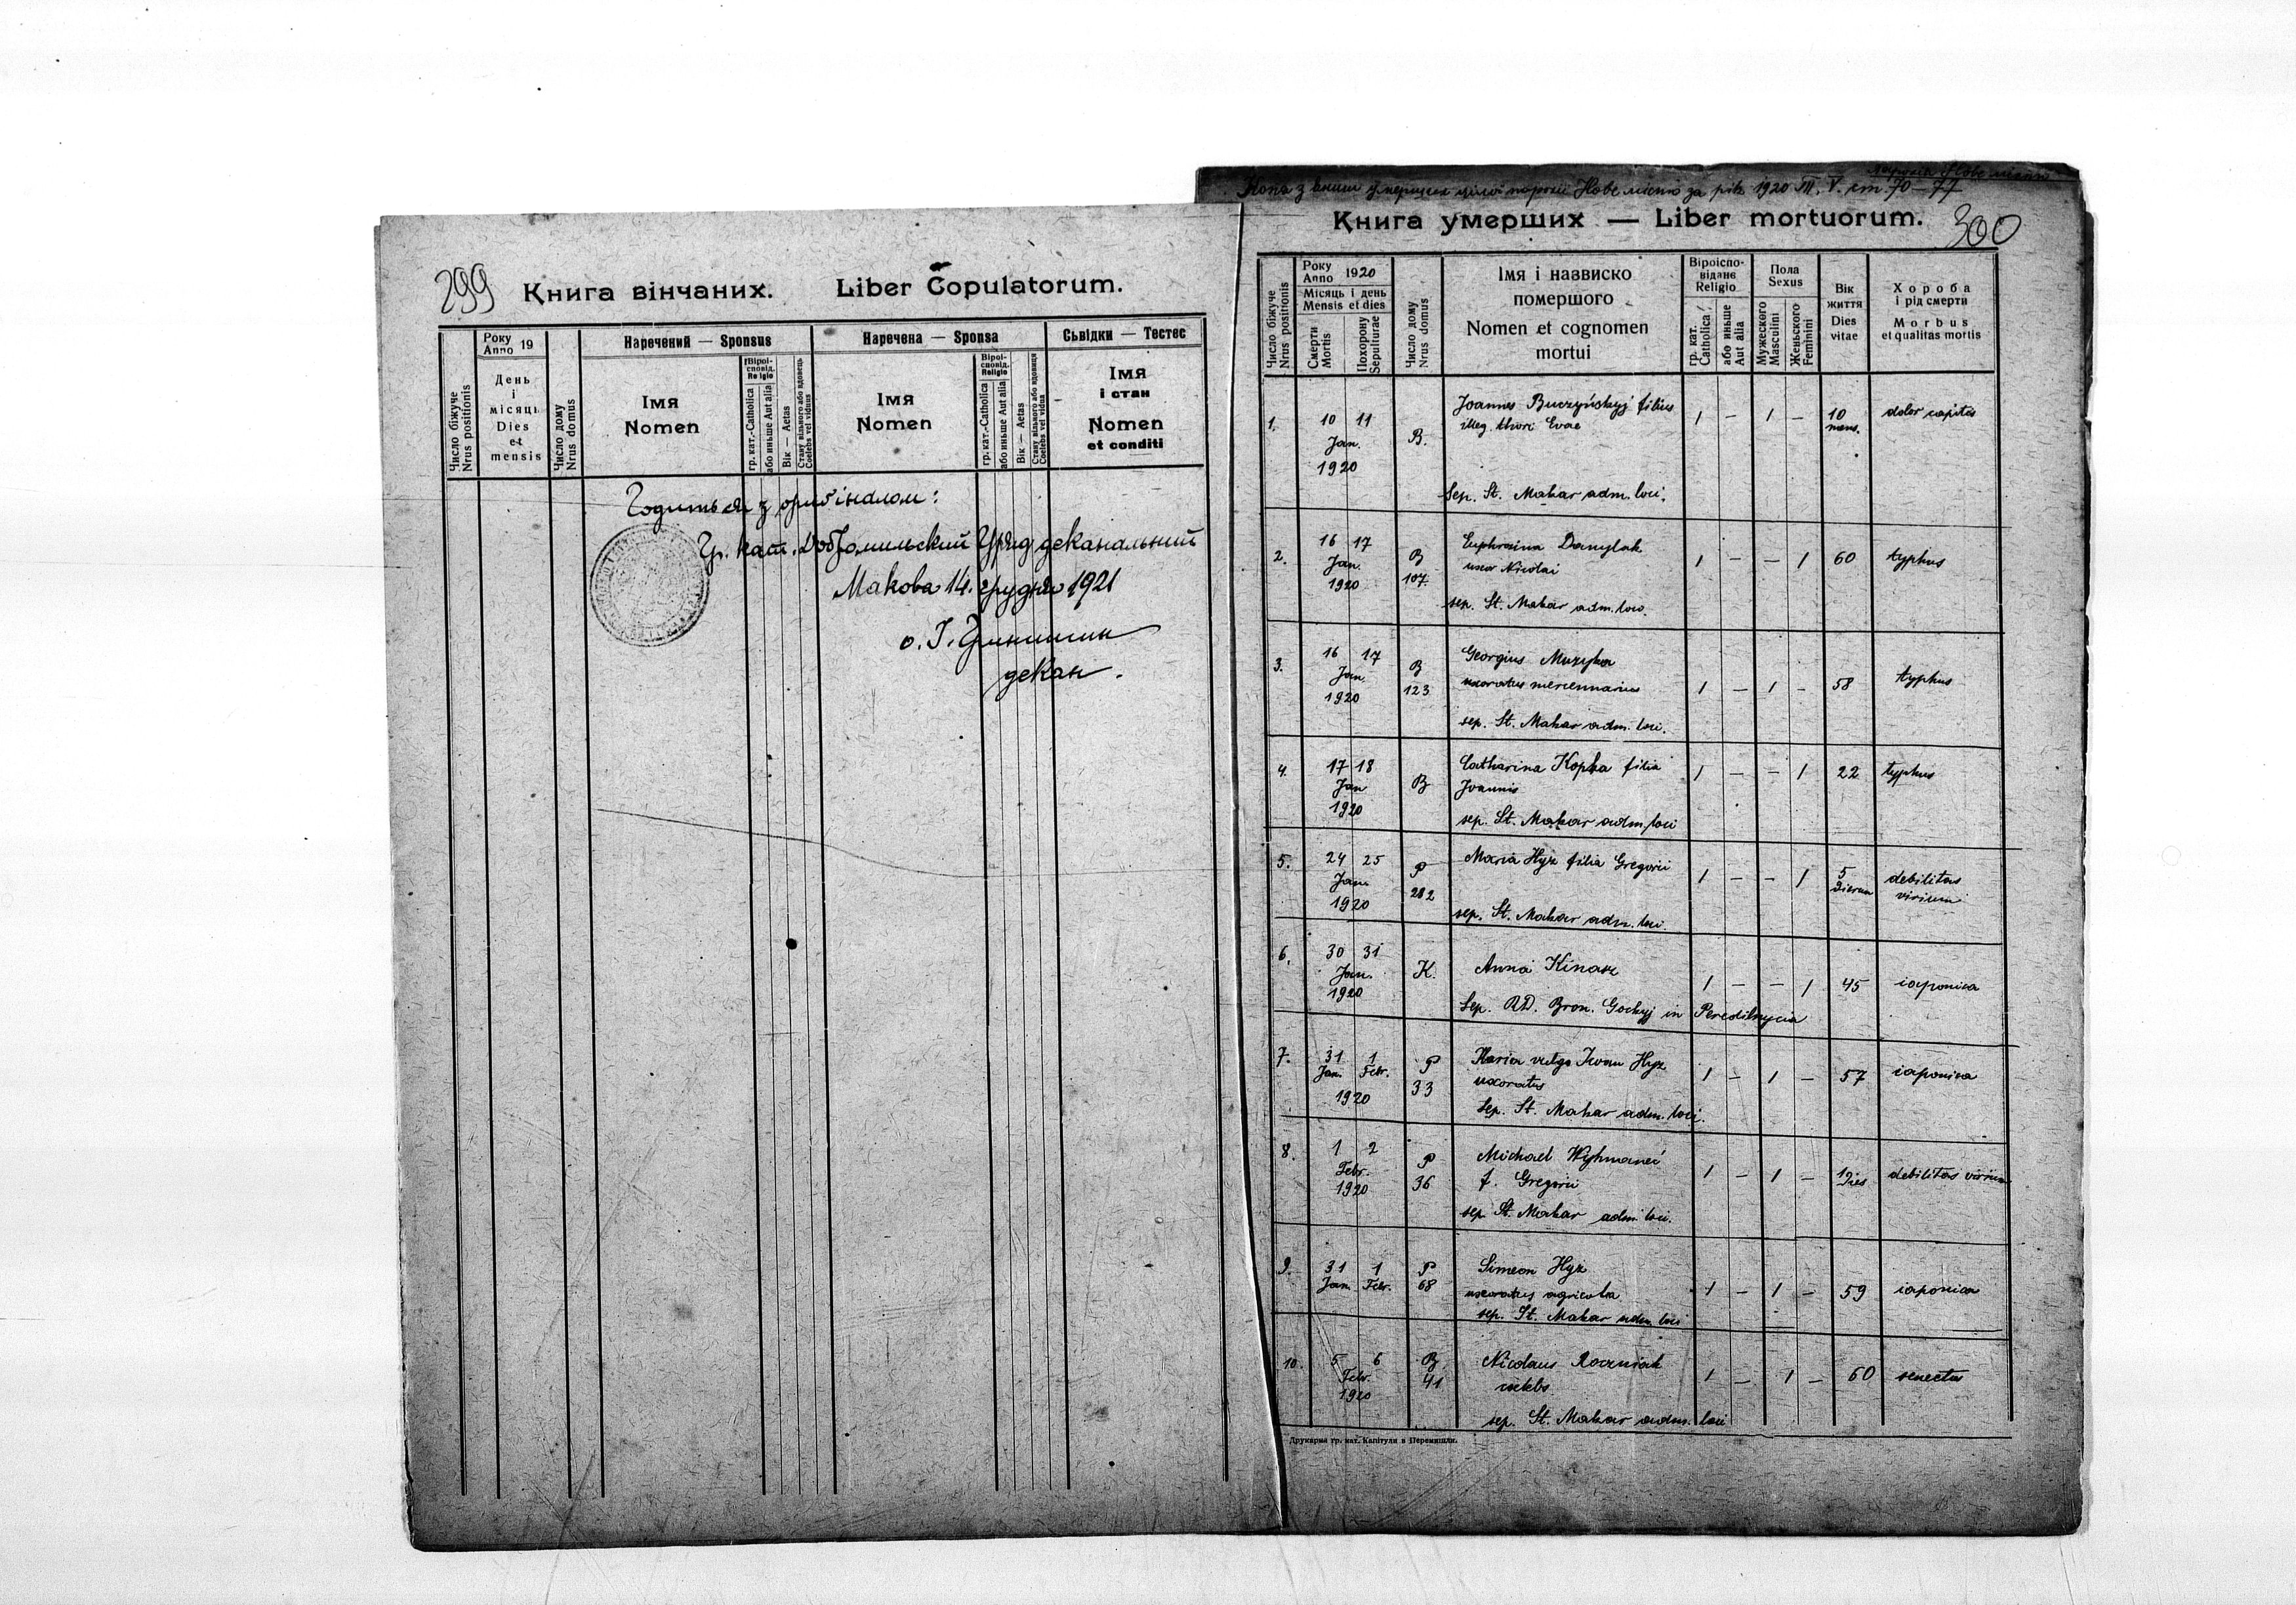 299
Книга вінчаних. Liber Copulatorum.
Число біжуче
Nrus positionis
Року
Anno 19
День
і
місяць
Dies
et
mensis
Число дому
Nrus domus
Наречений — Sponsus
Імя
Nomen
Віроі-
сповід.
Religio
гр. кат.-Catholica
або иньше Aut alia
Вік — Aetas
Стану вільного або вдовець
Coelebs vel viduus
Наречена — Sponsa
Імя
Nomen
Віроі-
сповід.
Religio
гр. кат.-Catholica
або иньше Aut alia
Вік — Aetas
Стану вільного або вдовиця
Coelebs vel vidua
Сьвідки — Тестес
Імя
і стан
Nomen
et conditi
Годиться з оригіналом:
Гр. кат. Добромильский Уряд деканальний
Макова 14. грудня 1921
о. І.
декан.
Копія з книги умерших цілої парохії Нове місто за рік 1920 Т. V. ст. 70–77
Книга умерших — Liber mortuorum.
300
Число біжуче
Nrus positionis
Року
Anno 1920
Місяць і день
Mensis et dies
Смерти
Mortis
Похорону
Sepulturae
Число дому
Nrus domus
Імя і назвиско
помершого
Nomen et cognomen
mortui
Віроіспо-
відане
Religio
гр. кат.
Catholica
або иньше
Aut alia
Пола
Sexus
Мужеского
Masculini
Женьского
Feminini
Вік
життя
Dies
vitae
Хороба
і рід смерти
Morbus
et qualitas mortis
1. 10 11 Jan. 1920 B. Joannes Buczyńskyj filius 1 — 1 — 10 mens. dolor capitis
illeg. thori Evae
Sep. St. Makar adm. loci.
2. 16 17 Jan. 1920 B 107. Euphrosina Danylak 1 — — 1 60 typhus
uxor Nicolai
sep. St. Makar adm. loci.
3. 16 17 Jan. 1920 B 123 Georgius Muzyka 1 — 1 — 58 typhus
uxoratus mercennarius
sep. St. Makar adm. loci.
4. 17 18 Jan 1920 B Catharina Kopka filia 1 — — 1 22 typhus
Joannis
sep. St. Makar adm. loci
5. 24 25 Jan. 1920 P 282 Maria Hyz filia Gregorii 1 — — 1 5 dierum debilitas virium
sep. St. Makar adm. loci.
6. 30 31 Jan. 1920 K. Anna Kinasz 1 — — 1 45 iaponica
Sep. RD. Bron. Gockyj in Peredilnycia
7. 31 Jan. 1 Febr. 1920 P 33 Ilaria vulgo Iwan Hyz 1 — 1 — 57 iaponica
uxoratus
Sep. St. Makar adm. loci.
8. 1 2 Febr. 1920 P 36 Michael Wyhnaneć 1 — 1 — 1 dies debilitas virium
f. Gregorii
sep St. Makar adm. loci.
9. 31 Jan. 1 Febr. P 68 Simeon Hyz 1 — 1 — 59 iaponica
uxoratus agricola
sep. St. Makar adm loci
10. 5 6 Febr. 1920 B. 41 Nicolaus Roczniak 1 — 1 — 60 senectus
caelebs
sep. St. Makar adm. loci
Друкарня гр. кат. Капітули в Перемишли.